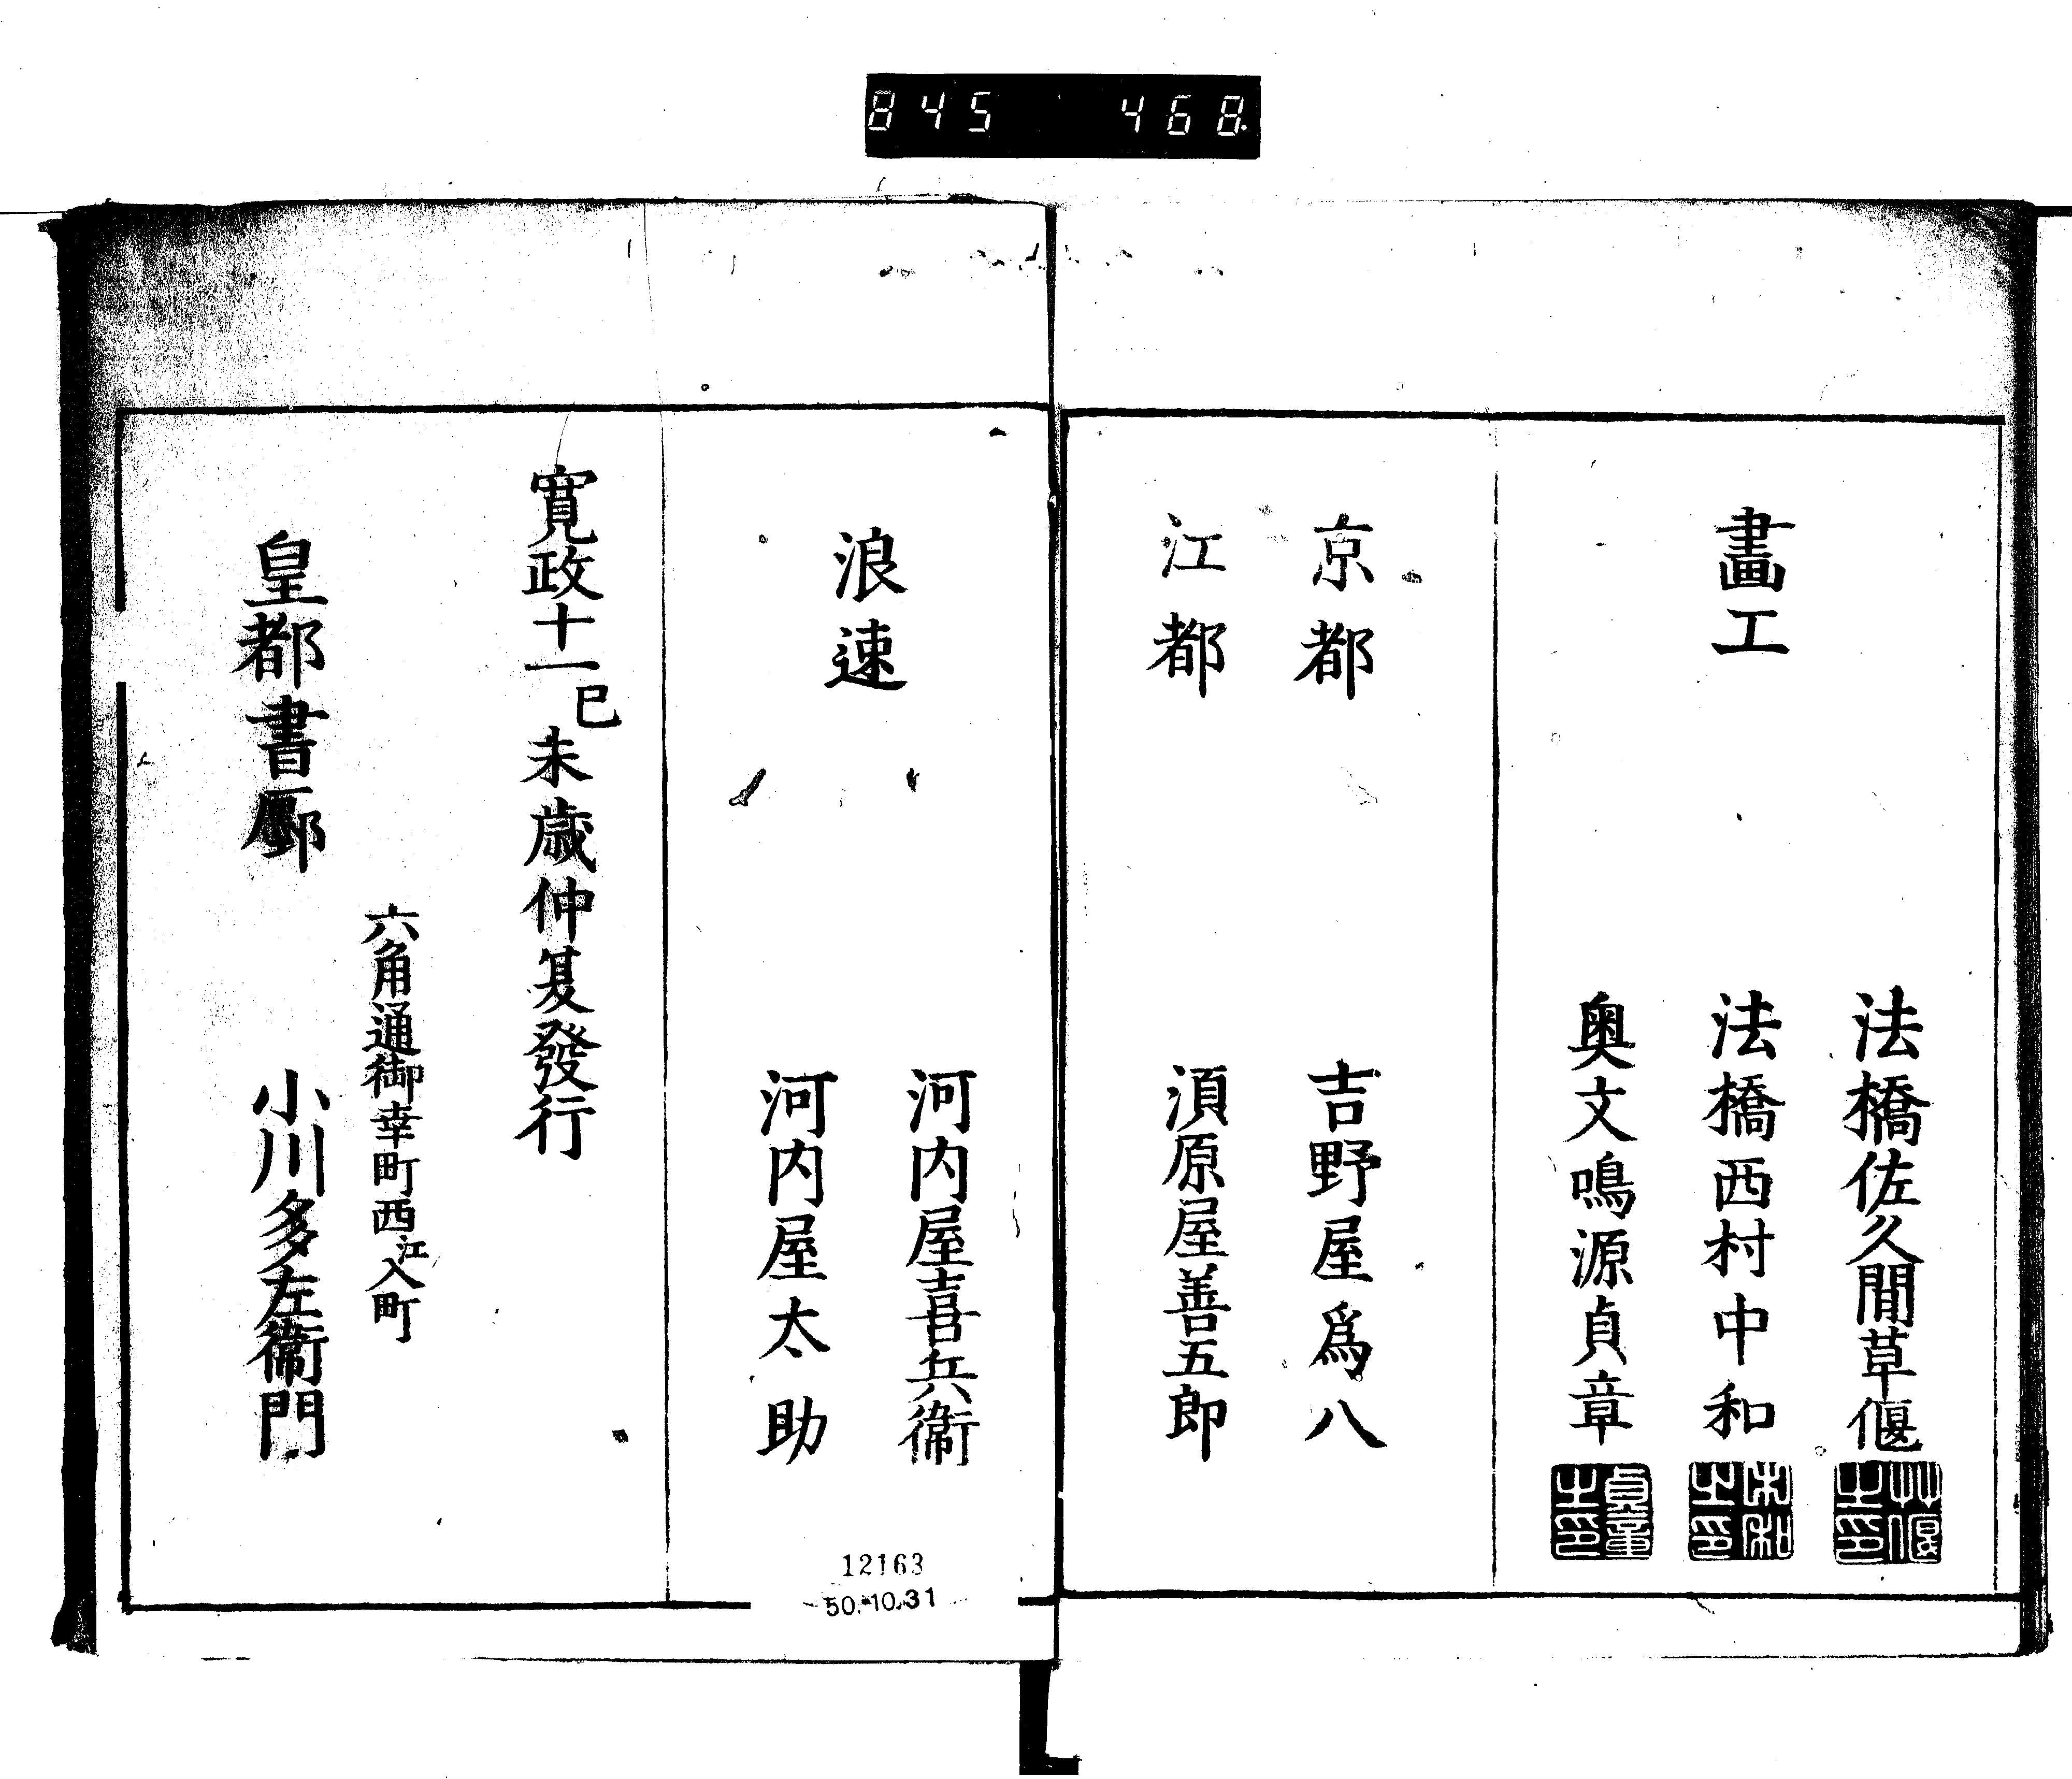 845 468.
畫工
法橋佐久間草偃
草偃之印
法橋西村中和
中和之印
奥文鳴源貞章
貞章之印
京都 吉野屋爲八
江都 須原屋善五郎
浪速
河内屋喜兵衞
河内屋太助
寛政十一己未歳仲夏發行
六角通御幸町西江入町
皇都書鄽 小川多左衞門
12163
50.10.31